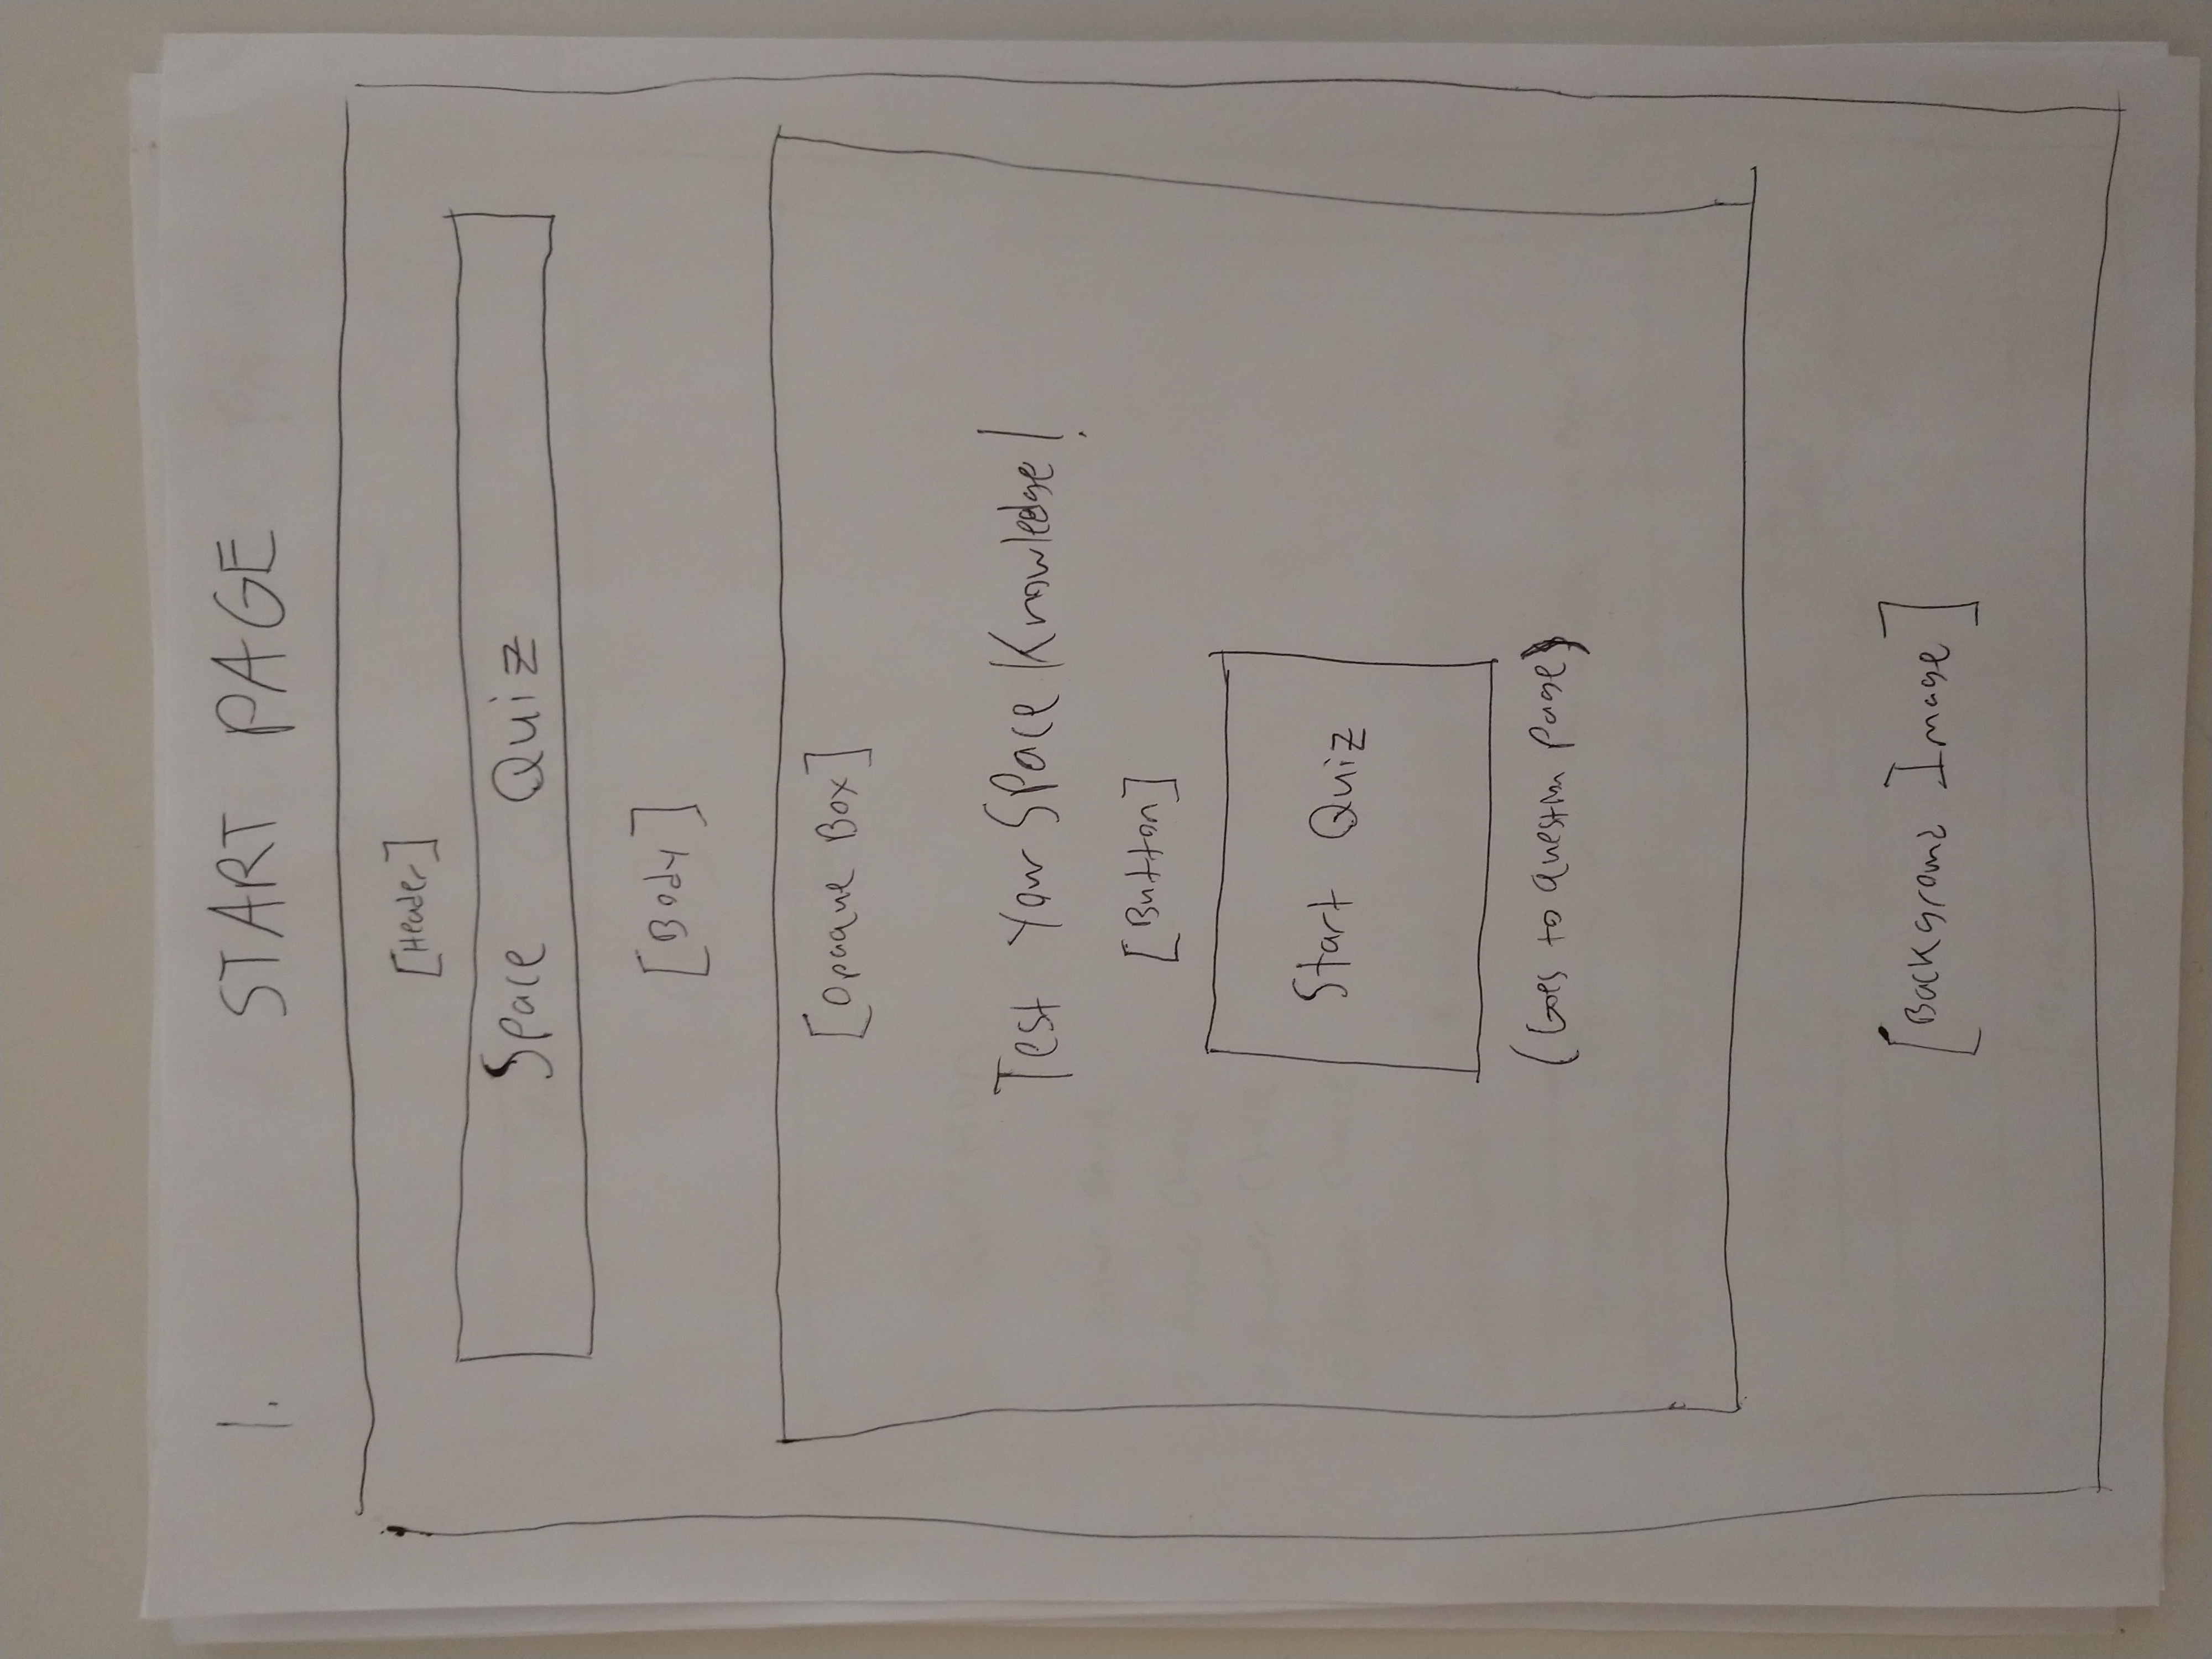 1. START PAGE
[Header]
Space Quiz
[Body]
[Opaque Box]
Test Your Space Knowledge!
[Button]
Start Quiz
(Goes to Question Page)
[Background Image]